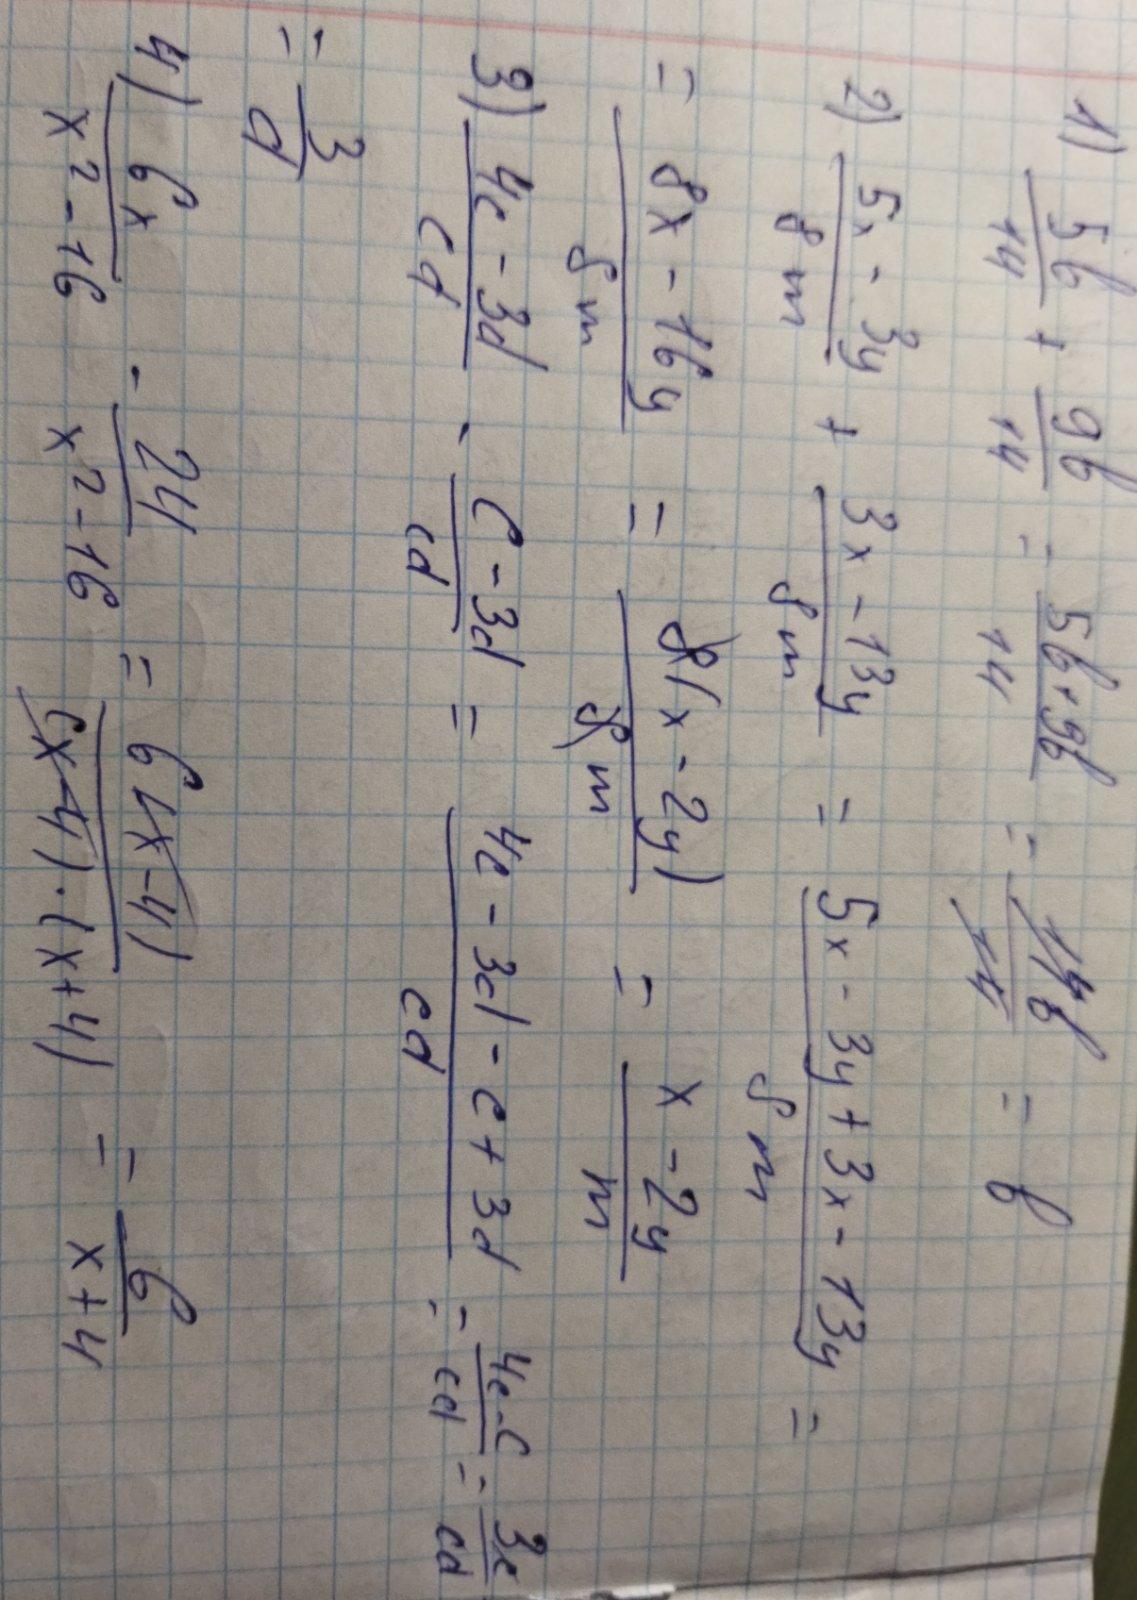 1) 5b/14 + 9b/14 = 5b+9b/14 = 14b/14 = b
2) 5x - 3y/8m + 3x - 13y/8m = 5x - 3y + 3x - 13y/8m =
= 8x - 16y/8m = 8(x - 2y)/8m = x - 2y/m
3) 4c - 3d/cd - c - 3d/cd = 4c - 3d - c + 3d/cd = 4c-c/cd = 3c/cd
= 3/d
4) 6x/x²-16 - 24/x²-16 = 6(x-4)/(x-4)·(x+4) = 6/x+4